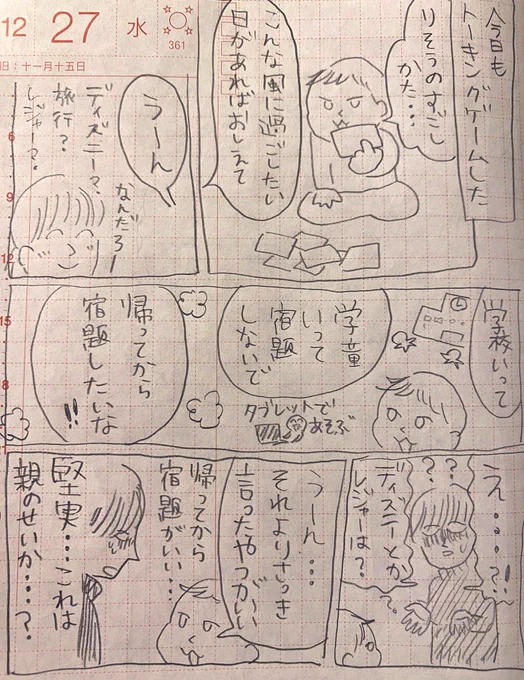 12 27 水
361
旧:十一月十五日
今日も
トーキングゲームした
りそうのすごし
かた…
こんな風に過ごしたい
日があればおしえて
うーん
ディズニー?
旅行?
レジャー?
なんだろー
6
9
12
15
8
学校いって
学童
いって
宿題
しないで
タブレットで
あそぶ
帰ってから
宿題したいな
!!
え…?!
? ?
ディズニーとか
レジャーは?
うーん…
それよりさっき
言ったやつがいい
帰ってから
宿題がいい…
堅実…これは
親のせいか…?